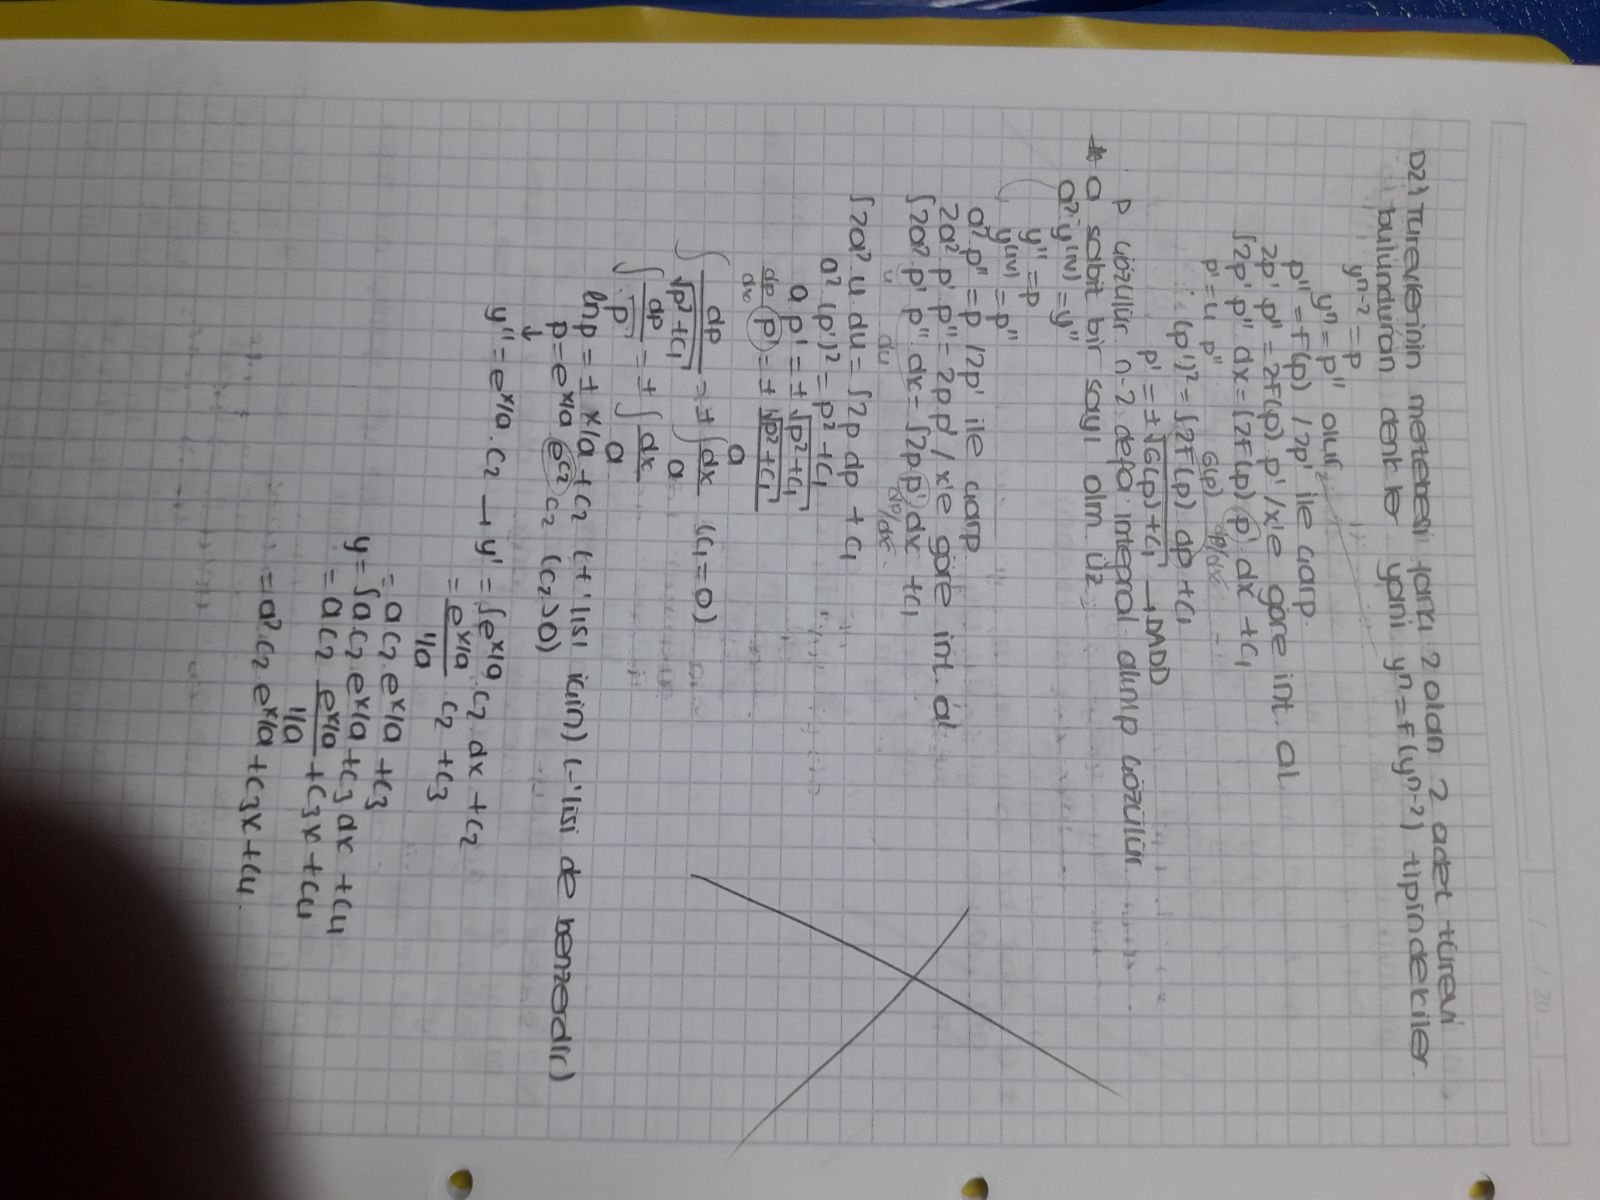 / / 20
D2) Türevlerinin mertebesi farkı 2 olan 2 adet türevi
bulunduran denkler yani yⁿ = F(yⁿ⁻²) tipindekiler
yⁿ⁻² = p
yⁿ = p'' olur
p'' = F(p) / 2p' ile çarp.
2p' p'' = 2F(p) p' / x'e göre int. al
∫2p' p'' dx = ∫2F(p) p' dx + c₁
p' = u p'' G(p) dp/dx
(p')² = ∫2F(p) dp + c₁
p' = ±√G(p)+c₁ → DADD
p çözülür n-2 defa integral alınıp çözülür
* a sabit bir sayı olm üz.
a² y⁽ᴵⱽ⁾ = y''
y'' = p
y⁽ᴵⱽ⁾ = p''
a² p'' = p / 2p' ile çarp.
2a² p' p'' = 2p p' / x'e göre int. al
∫2a² p' p'' dx = ∫2p p' dx + c₁
u du dp/dx
∫2a² u du = ∫2p dp + c₁
a² (p')² = p² + c₁
a p' = ±√p²+c₁
dp/dx p' = ±√p²+c₁ / a
∫ dp/√p²+c₁ = ±∫ dx/a (c₁=0)
∫ dp/p = ±∫ dx/a
lnp = ± x/a + c₂ (+'lısı için) (-'lisi de benzerdir)
p = e^x/a e^c₂ c₂ (c₂>0)
↓
y'' = e^x/a . c₂ → y' = ∫e^x/a c₂ dx + c₂
= e^x/a / 1/a c₂ + c₃
= a c₂ e^x/a + c₃
y = ∫a c₂ e^x/a + c₃ dx + c₄
= a c₂ e^x/a / 1/a + c₃x + c₄
= a² c₂ e^x/a + c₃x + c₄.